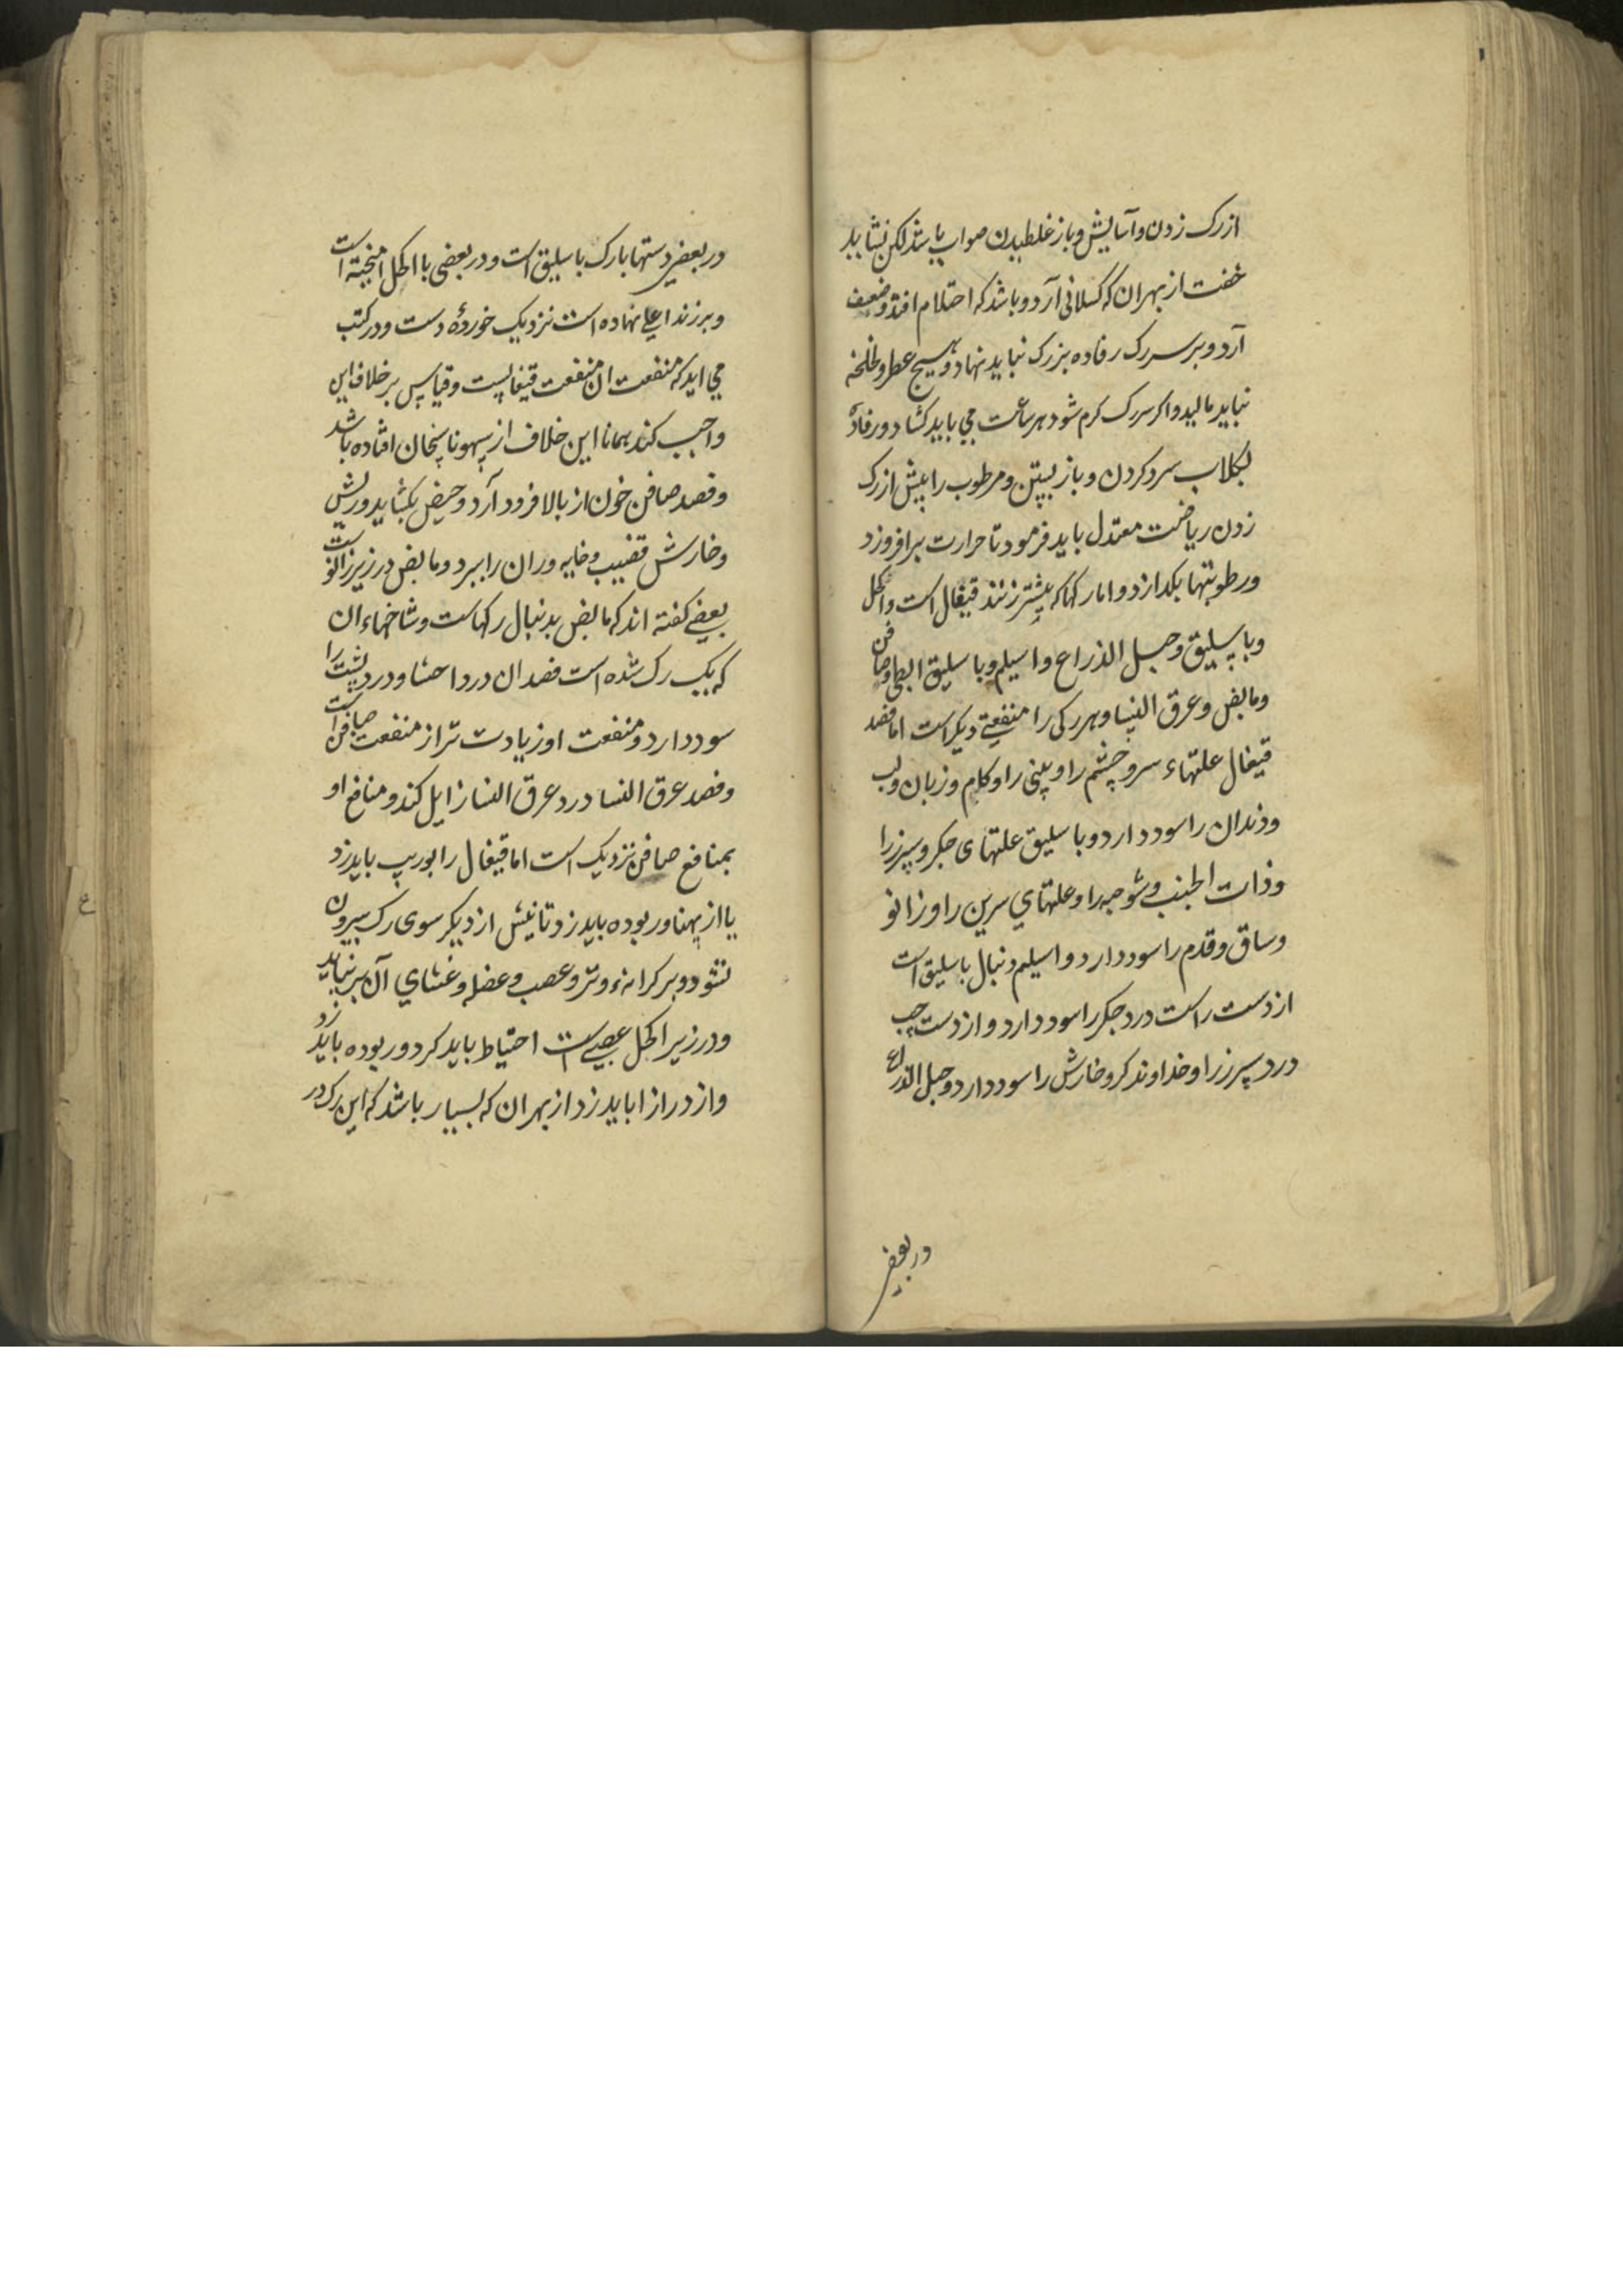 از رک زدن و آسایش و باز غلطیدن صواب باشد لکن نشاید
خفت از بهر ان که کسلانی آرد و باشد که احتلام افتد و ضعف
آرد و بر سر رک رفاده بزرک نباید نهاد و هیچ عطر و لخلخه
نباید مالید و اکر سر رک کرم شود هر ساعت می باید کشاد و رفاده
بکلاب سرد کردن و باز بستن و مرطوب را پیش از رک
زدن ریاضت معتدل باید فرمود تا حرارت برافروزد
و رطوبتها بکدازد و اما رکها که بیشتر زنند قیفال است و اکحل
و باسلیق و حبل الذراع و اسیلم و باسلیق ابطی و صافن
و مابض و عرق النسا و هر رکی را منفعتی دیکر است اما فصد
قیفال علتهاء سر و چشم را و بینی را و کام و زبان و لب
و دندان را سود دارد و باسلیق علتهای جکر و سپرز را
و ذات الجنب و شوصه را و علتهای سرین را و زانو
و ساق و قدم را سود دارد و اسیلم دنبال باسلیق است
از دست راست درد جکر را سود دارد و از دست چپ
درد سپرز را و خداوند کر و خارش را سود دارد و حبل الذراع
در بعضی
در بعضی دستها با رک باسلیق است و در بعضی با اکحل امیخته است
و بر زند اعلی نهاده است نزدیک خوردهٔ دست و در کتب
می اید که منفعت ان منفعت قیفالیست و قیاس بر خلاف این
واجب کند همانا این خلاف از سهو ناسخان افتاده باشد
و فصد صافن خون از بالا فرود آرد و حیض بکشاید و ریش
و خارش قضیب و خایه و ران را ببرد و مابض در زیر زانوست
بعضی کفته اند که مابض بدنبال رکهاست و شاخهاء ان
که یک رک شده است فصد ان درد احشا و درد پشت را
سود دارد و منفعت او زیادت تر از منفعت صافن است
و فصد عرق النسا درد عرق النسا زایل کند و منافع او
بمنافع صافن نزدیک است اما قیفال را بوریب باید زد
یا از پهنا و ربوده باید زد تا نیش از دیکر سوی رک بیرون
نشود و بر کرانهء وتر و عصب و عضله و غشای آن بر نیاید
و در زیر اکحل عصبی است احتیاط باید کرد و ربوده باید زد
و از درازا باید زد از بهر ان که بسیار باشد که این رک در